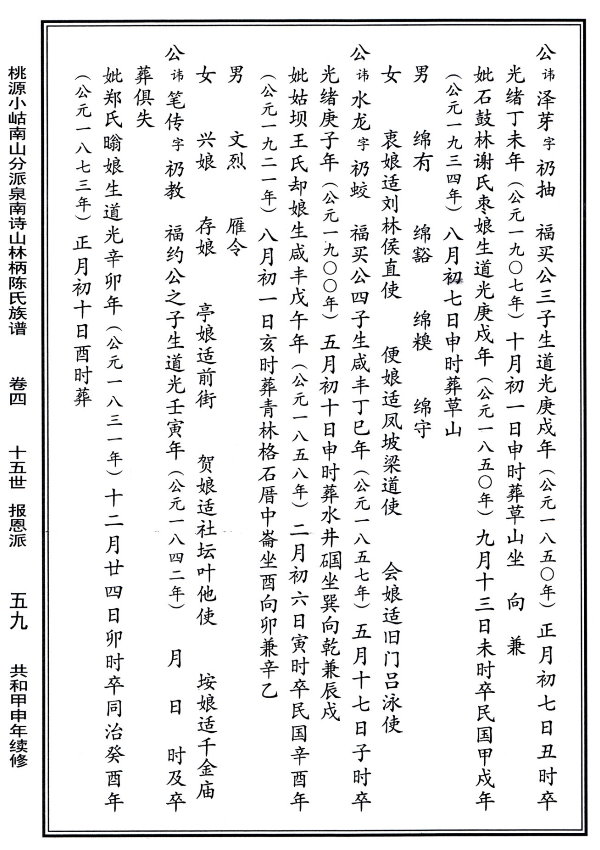 公讳泽芽字礽抽 福买公三子生道光庚戌年（公元一八五〇年）正月初七日丑时卒
光绪丁未年（公元一九〇七年）十月初一日申时葬草山坐 向 兼
妣石鼓林谢氏枣娘生道光庚戌年（公元一八五〇年）九月十三日未时卒民国甲戌年
（公元一九三四年）八月初七日申时葬草山
男 绵有 绵豁 绵糗 绵守
女 衷娘适刘林侯直使 便娘适凤坡梁道使 会娘适旧门吕泳使
公讳水龙字礽蛟 福买公四子生咸丰丁巳年（公元一八五七年）五月十七日子时卒
光绪庚子年（公元一九〇〇年）五月初十日申时葬水井硘坐巽向乾兼辰戌
妣姑坝王氏却娘生咸丰戊午年（公元一八五八年）二月初六日寅时卒民国辛酉年
（公元一九二一年）八月初一日亥时葬青林格石厝中崙坐酉向卯兼辛乙
男 文烈 雁令
女 兴娘 存娘 亭娘适前街 贺娘适社坛叶他使 垵娘适千金庙
公讳笔传字礽教 福约公之子生道光壬寅年（公元一八四二年） 月 日 时及卒
葬俱失
妣郑氏暡娘生道光辛卯年（公元一八三一年）十二月廿四日卯时卒同治癸酉年
（公元一八七三年）正月初十日酉时葬
桃源小岵南山分派泉南诗山林柄陈氏族谱 卷四 十五世 报恩派 五九 共和甲申年续修